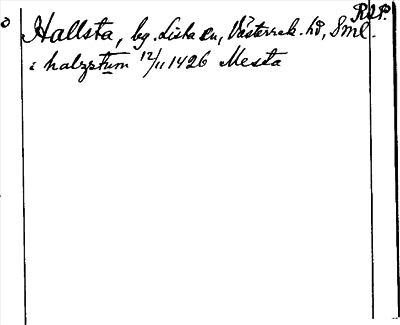 RAP.
Hallsta, by. Lista sn, Västerrek. hd, Sml.
i halzstum 12/11 1426 Mesta